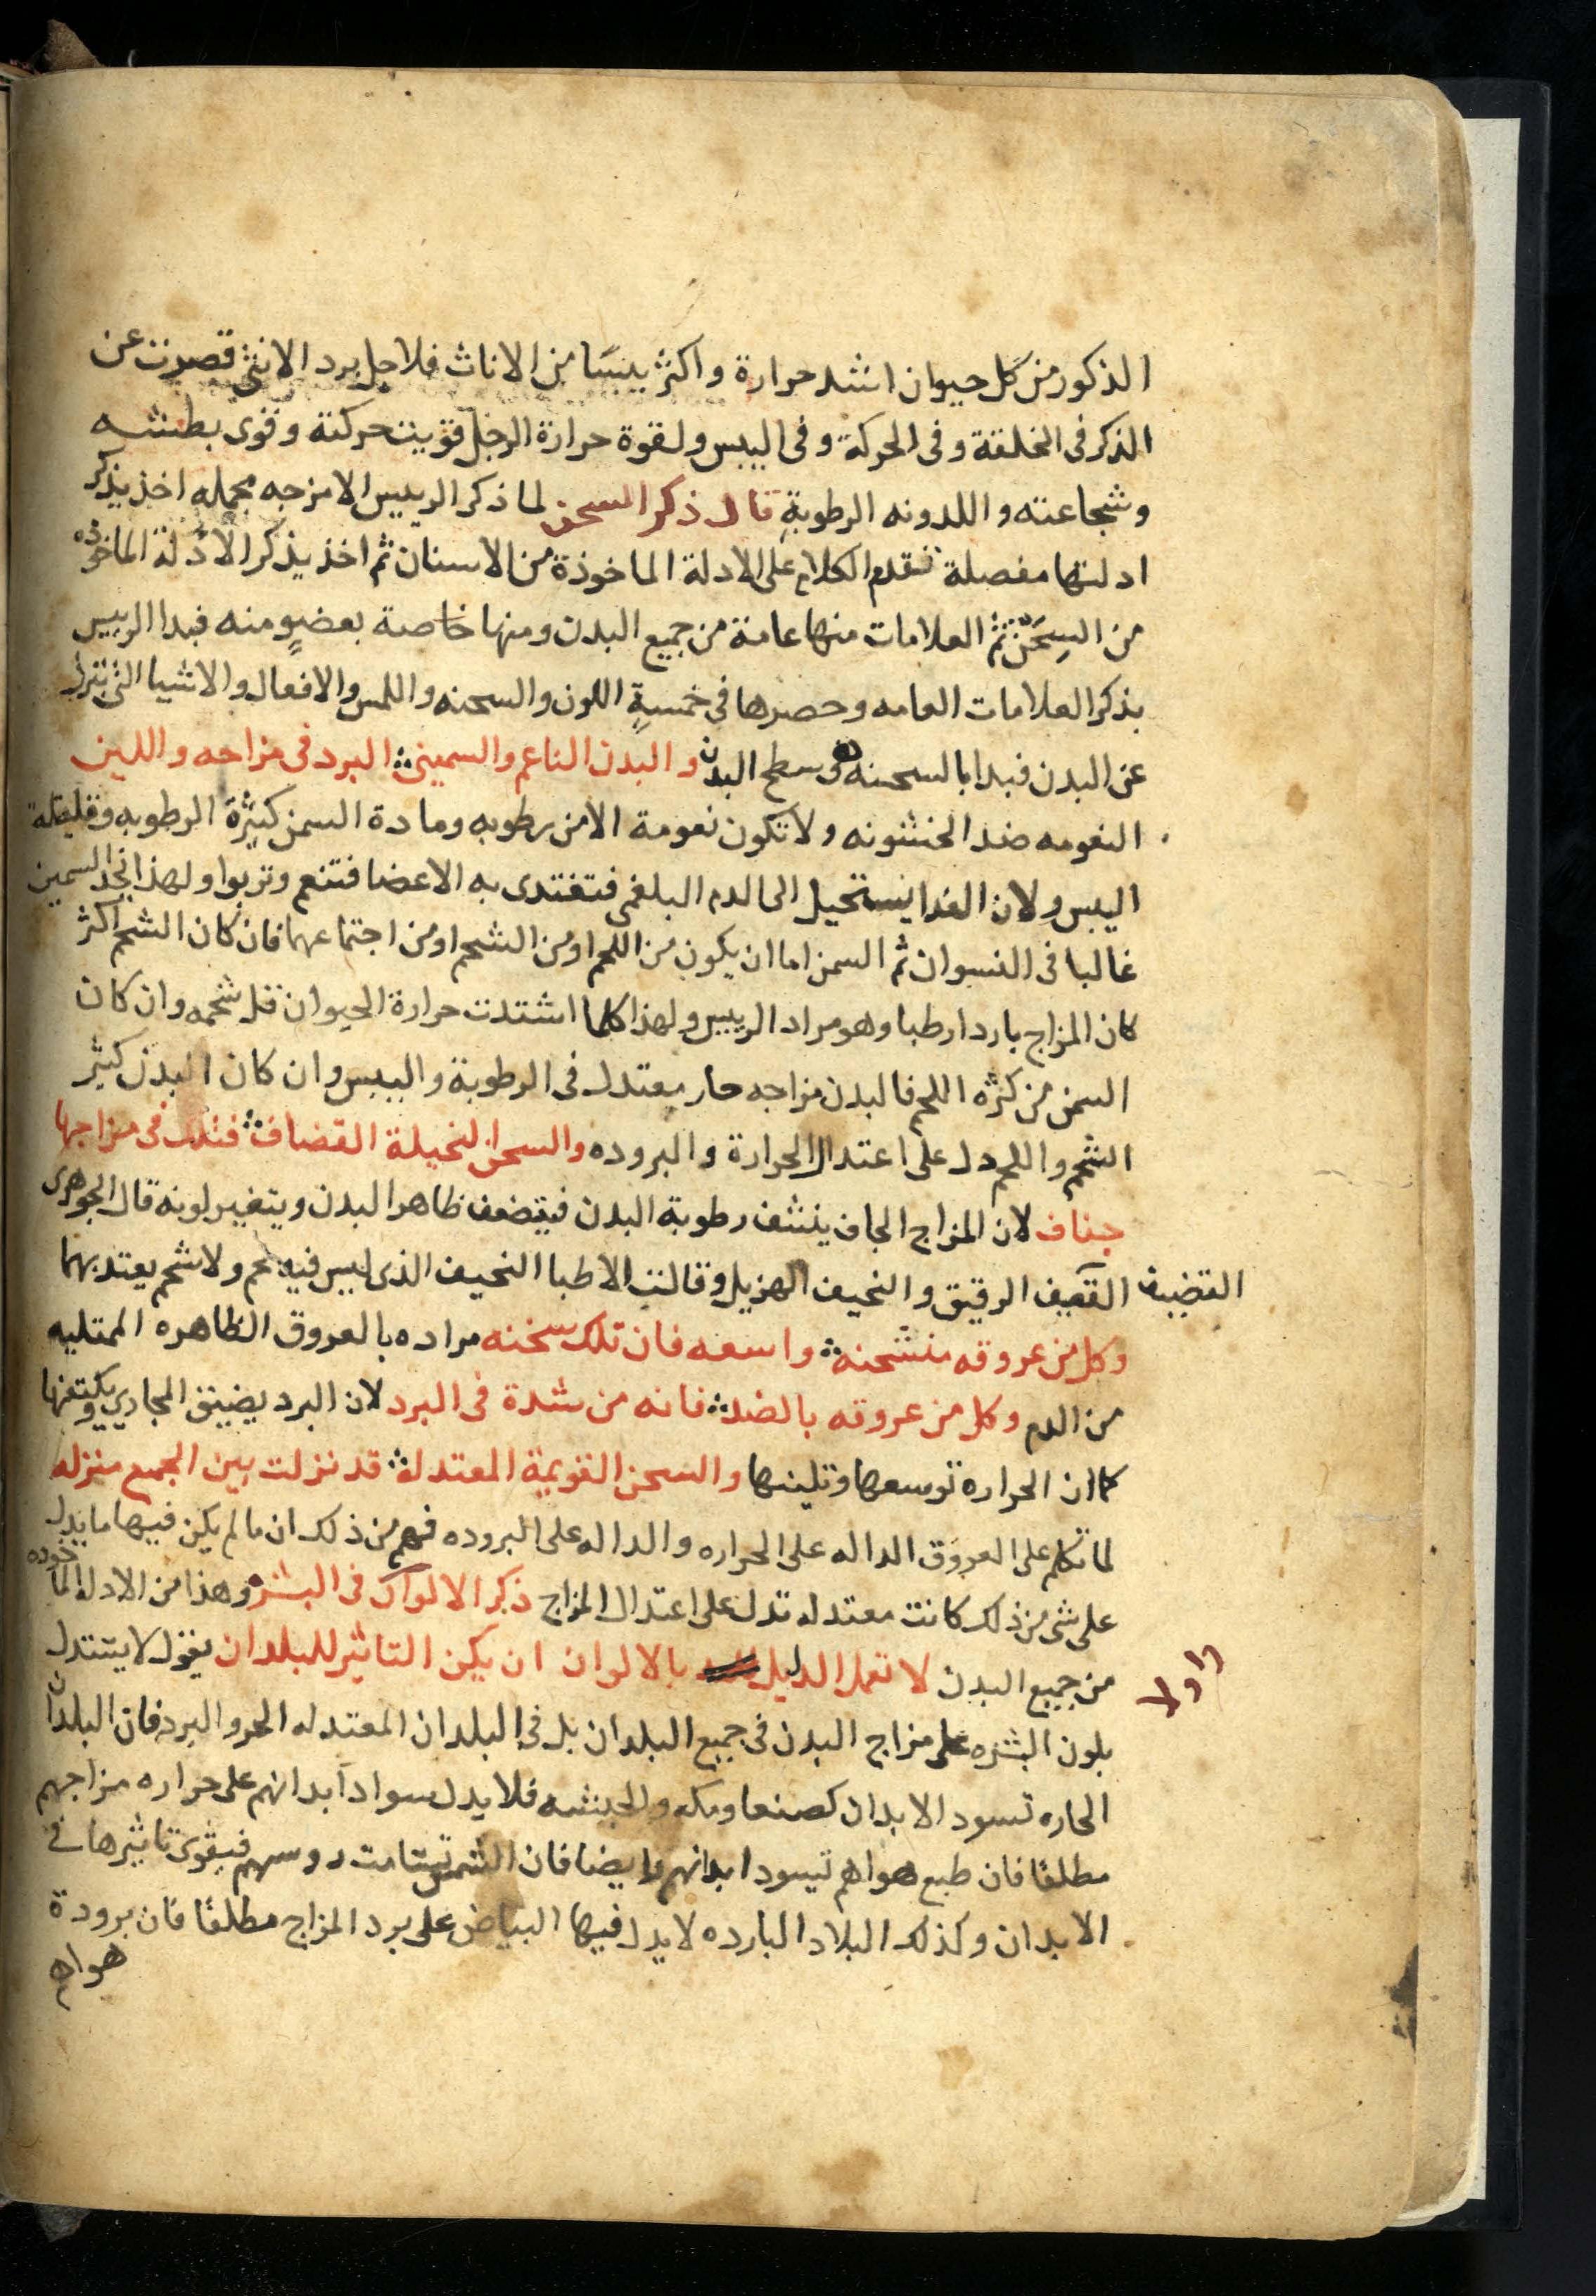 الذكور من كل حيوان اشد حرارة واكثر يبسًا من الاناث فلاجل برد الانثى قصرت عن
الذكر في الخلقة وفي الحركة وفي اليبس ولقوة حرارة الرجل قويت حركتة وقوى بطشه
وشجاعته واللدونه الرطوبةِ قال ذكر السحن لما ذكر الرييس الامزجه مجمله اخذ يذكر
ادلتها مفصلة تقدم الكلام على الادلة الماخوذة من الاسنان ثم اخذ يذكر الادلة الماخوذه
من السِحَن ثم العلامات منها عامة من جميع البدن ومنها خاصة بعضوٍ منه فبدا الرييس
بذكر العلامات العامه وحصرها في خمسةٍ اللون والسحنه واللمس والافعال والاشيا التي تنزل
عن البدن فبدا بالسحنه وسطح البدن والبدن الناعم والسمين ؞ البرد في مزاجه واللين
النعومه ضد الخشونه ولا تكون نعومة الا من رطوبه ومادة السمن كثيرة الرطوبه وقليلة
اليبس ولان الغدا يستحيل الى الدم البلغمى فتغتدى به الاعضا فتنعم وتربوا ولهذا تجد السمين
غالبا في النسوان ثم السمن اما ان يكون من اللحم او من الشحم او من اجتماعهما فان كان الشحم اكثر
كان المزاج باردا رطبا وهو مراد الرييس ولهذا كلما اشتدت حرارة الحيوان قل شحمه وان كان
السمن من كثرة اللحم فالبدن مزاجه حار معتدل في الرطوبة واليبس وان كان البدن كثير
الشحم واللحم دل على اعتدال الحرارة والبروده والسحن النحيلة القضاف ؞ فتلك في مزاجها
جفاف لان المزاج الجاف ينشف رطوبة البدن فيضعف ظاهر البدن ويتغير لونه قال الجوهرى
القضيف الرقيق والنحيف الهزيل وقالت الاطبا النحيف الذى ليس فيه لحم ولا شحم يعتد بهما
القضيف
وكل من عروقه منشحنه ؞ واسعه فان تلك سخنه مراده بالعروق الظاهره الممتليه
من الدم وكل من عروقه بالضد ؞ فانه من شدة في البرد لان البرد يضيق المجاري ويكتفها
كما ان الحراره توسعها وتلينها والسحن القويمة المعتدلة ؞ قد نزلت بين الجميع منزله
لما تكلم على العروق الداله على الحراره والداله على البروده فهم من ذلك ان ما لم يكن فيها ما يدل
على شى من ذلك كانت معتدله تدل على اعتدال المزاج ذكر الالوان في البشره وهذا من الادله الماخوده
من جميع البدن لا تعمل الدليل بالالوان ان يكن التاثير للبلدان يقول لا يستدل
بلون البشره على مزاج البدن في جميع البلدان بل في البلدان المعتدله الحر والبرد فان البلدان
الحاره تسود الابدان كصنعا ومكه والحبشه فلا يدل سواد ابدانهم على حراره مزاجهم
مطلقا فان طبع هواهم تيسود ابدانهم وايضا فان الشمس تسامت روسهم فيقوى تاثيرها في
الابدان وكذلك البلاد البارده لا يدل فيها البياض على برد المزاج مطلقًا فان برودة
هواها